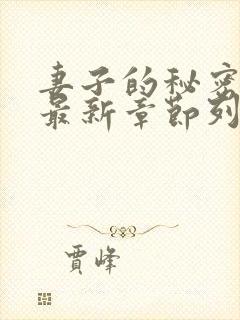 妻子的秘密
最新章节列
贾峰